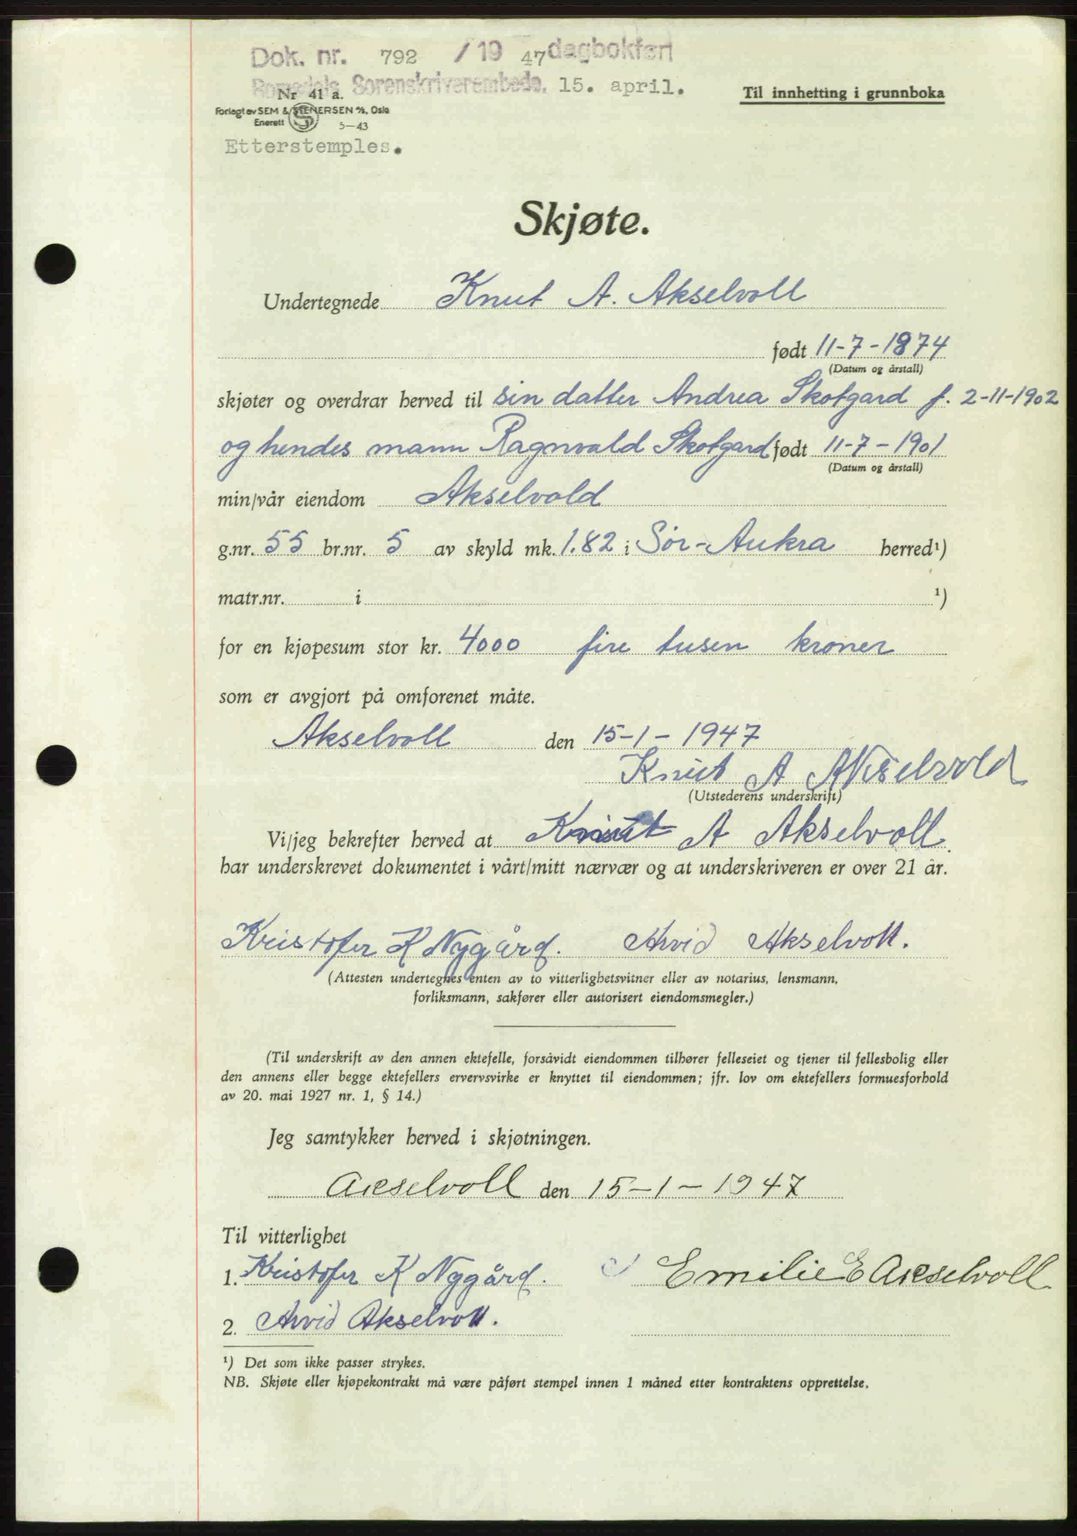 Dok. nr. 792 /19 47 dagbokført
Romsdals Sorenskriverembede. 15. april.
Nr 41 a.
Til innhetting i grunnboka
Forlagt av SEM & STENERSEN A/S, Oslo
Enerett 5-43
Etterstemples.
Skjøte.
Undertegnede Knut A. Akselvoll
født 11-7-1874
(Datum og årstall)
skjøter og overdrar herved til sin datter Andrea Skotgard f. 2-11-1902
og hendes mann Ragnvald Skotgard født 11-7-1901
(Datum og årstall)
min/vår eiendom Akselvold
g.nr. 55 br.nr. 5 av skyld mk. 1.82 i Sør-Aukra herred¹)
matr.nr. i ¹)
for en kjøpesum stor kr. 4000 fire tusen kroner
som er avgjort på omforenet måte.
Akselvoll den 15-1-1947
Knut A Akselvold
(Utstederens underskrift)
Vi/jeg bekrefter herved at Knut A Akselvoll
har underskrevet dokumentet i vårt/mitt nærvær og at underskriveren er over 21 år.
Kristofer K Nygård. Arvid Akselvoll.
(Attesten undertegnes enten av to vitterlighetsvitner eller av notarius, lensmann,
forliksmann, sakfører eller autorisert eiendomsmegler.)
(Til underskrift av den annen ektefelle, forsåvidt eiendommen tilhører felleseiet og tjener til fellesbolig eller
den annens eller begge ektefellers ervervsvirke er knyttet til eiendommen; jfr. lov om ektefellers formuesforhold
av 20. mai 1927 nr. 1, § 14.)
Jeg samtykker herved i skjøtningen.
Akselvoll den 15-1-1947
Til vitterlighet
1. Kristofer K Nygård. Emilie E Akselvoll
2. Arvid Akselvoll.
¹) Det som ikke passer strykes.
NB. Skjøte eller kjøpekontrakt må være påført stempel innen 1 måned etter kontraktens opprettelse.